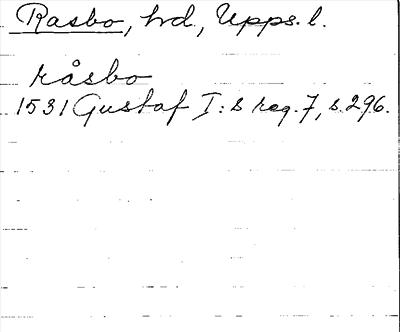 Rasbo, hd, Upps. l.
råsbo
1531 Gustaf I:s reg. 7, s. 296.